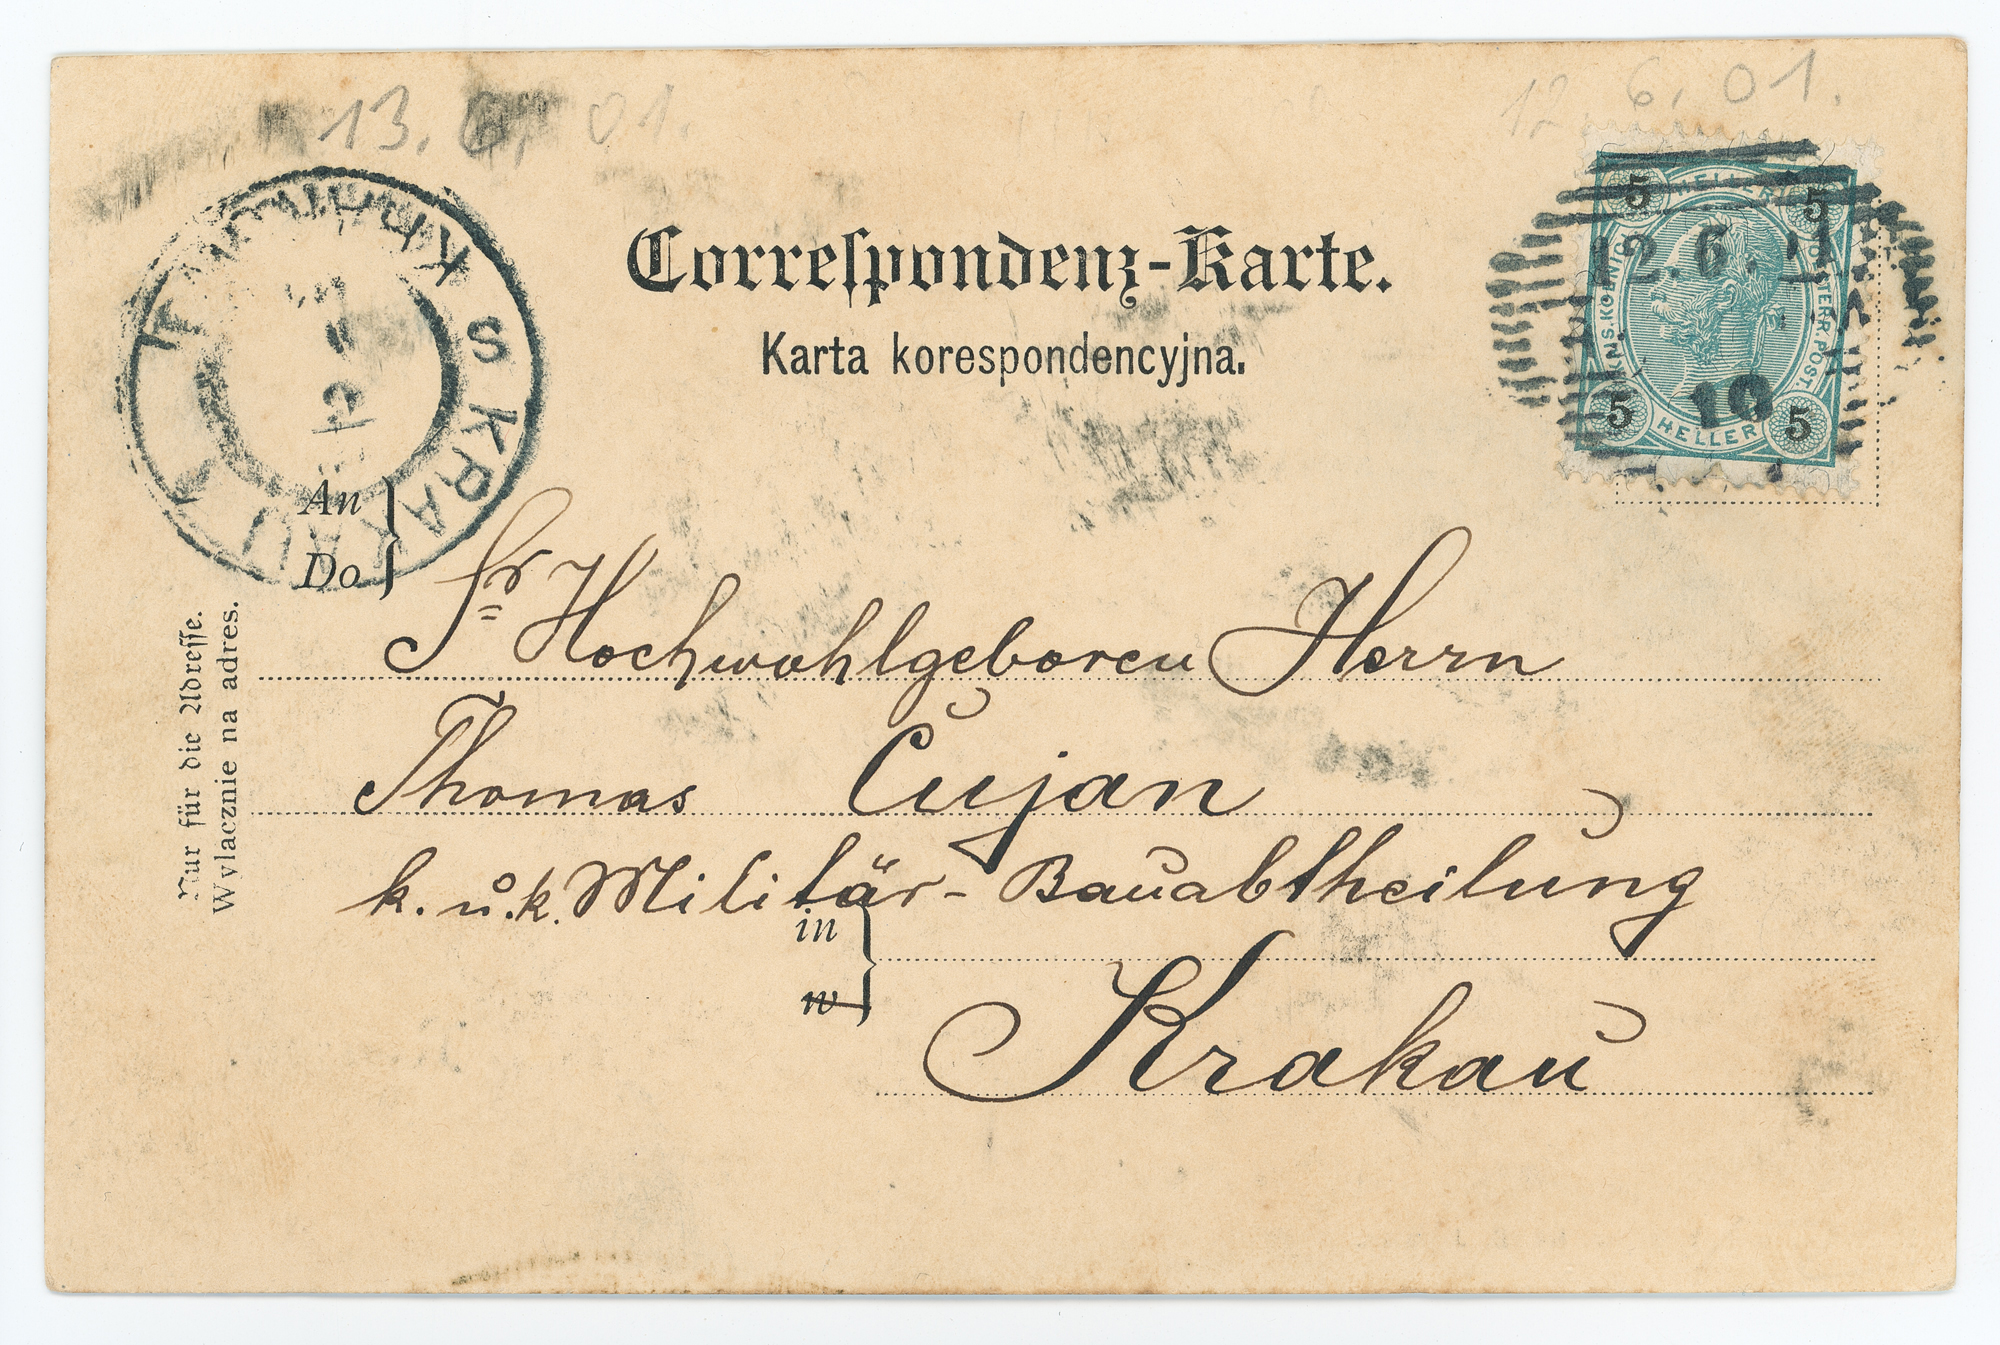 13. 6. 01.
12 6. 01.
Correspondenz-Karte.
Karta korespondencyjna.
5 HELLER 5
12.6. 01
10
5 HELLER 5
KRAKAU
S KRAKAU
An
Do
Sr Hochwohlgeboren Herrn
Thomas Cujan
k. u. k. Militär-Bauabtheilung
in
w
Krakau
Nur für die Adresse.
Wyłacznie na adres.